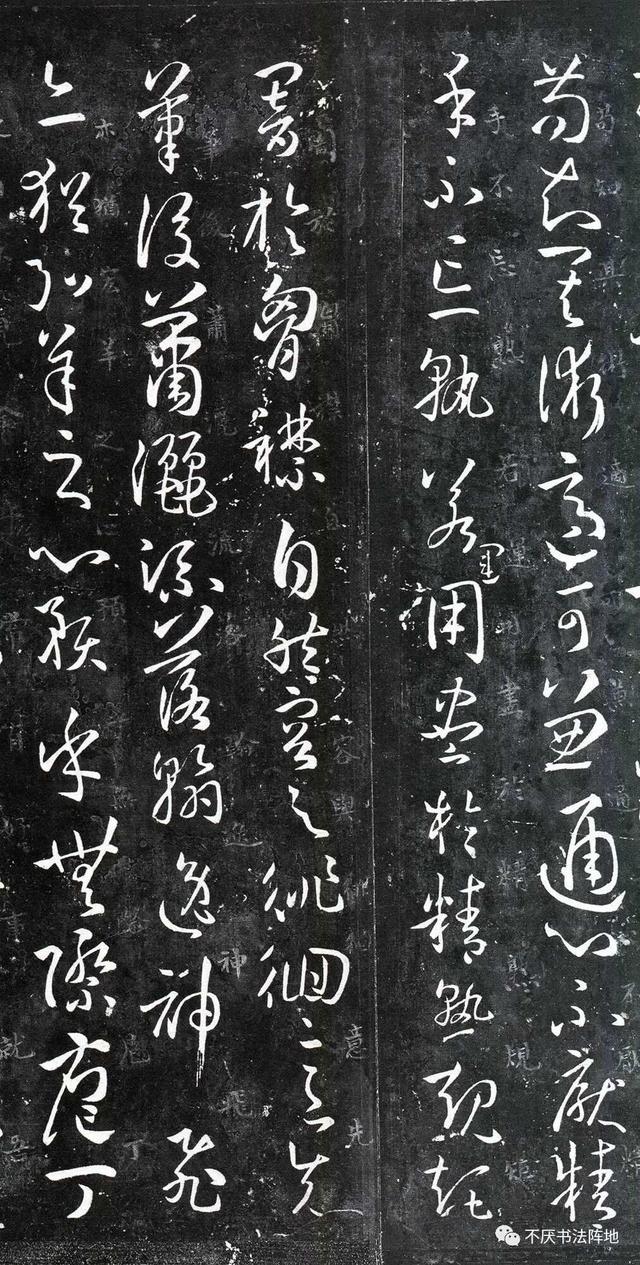 苟知其術適可兼通心不厭精
手不忘熟若運用盡於精熟規矩
闇於胷襟自然容與徘徊意先
筆後蕭灑流落翰逸神飛
亦猶弘羊之心預乎無際庖丁
不厌书法阵地